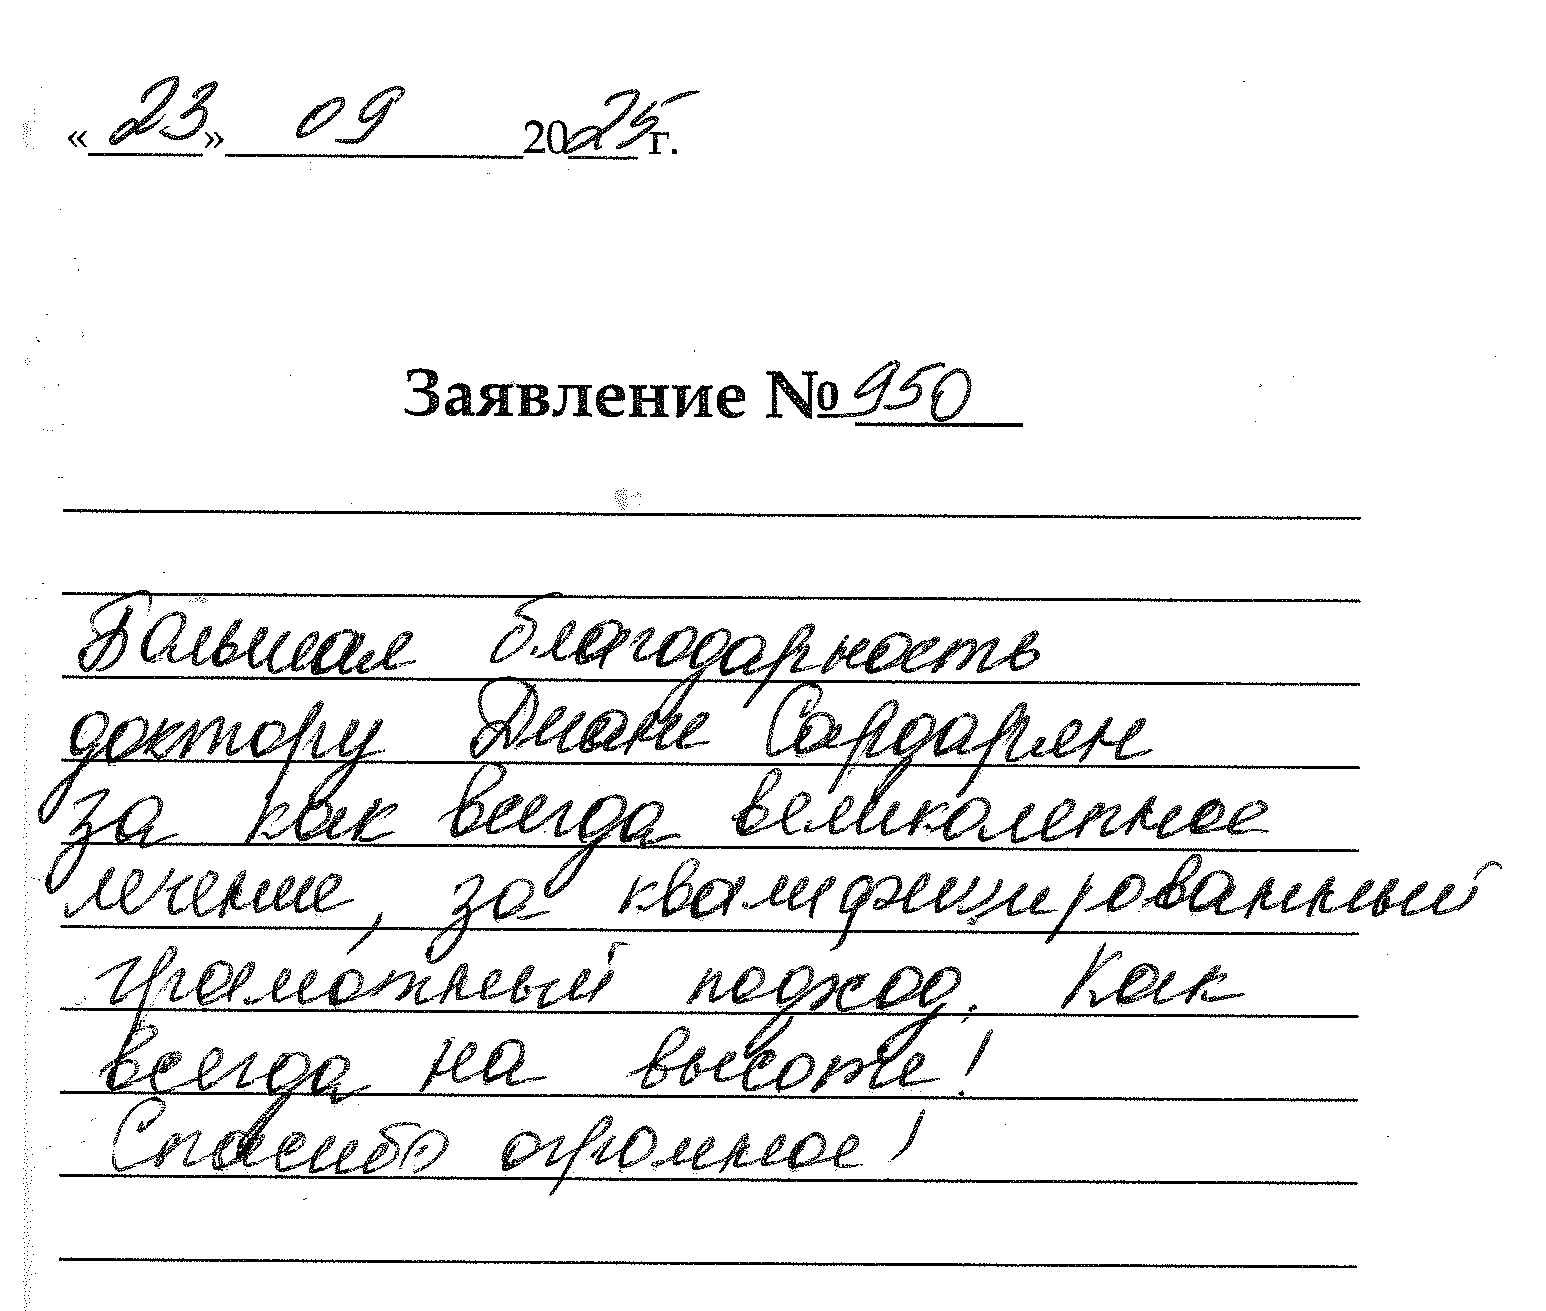 «23» 09 2025 г.
Заявление № 950
Большая благодарность
доктору Диане Сардарян
за как всегда великолепное
лечение, за квалифицированный
грамотный подход. Как
всегда на высоте!
Спасибо огромное!